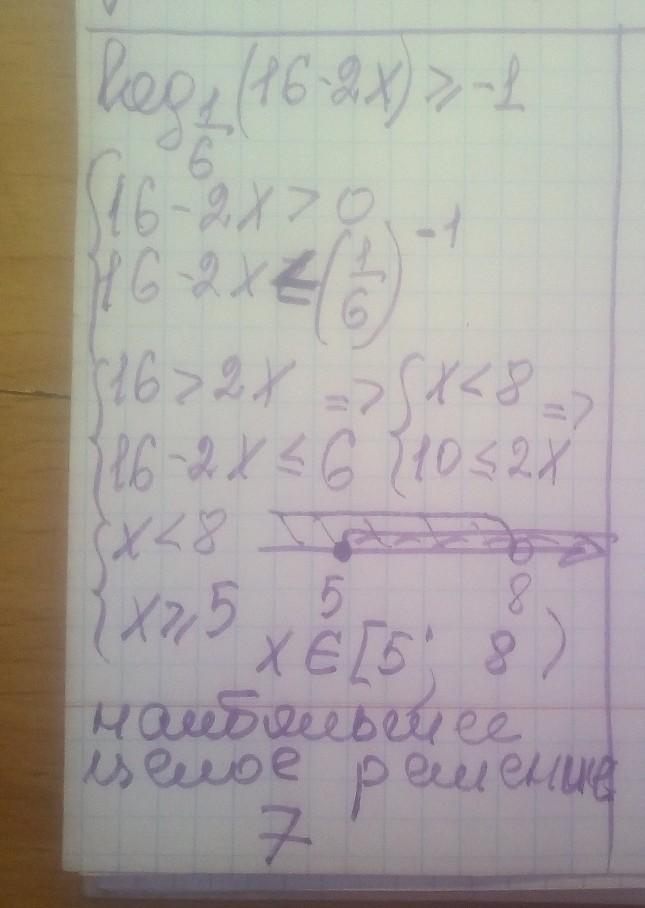 log_{1/6}(16-2x) ≥ -1
{ 16-2x > 0
{ 16-2x ≤ (1/6)^{-1}
{ 16 > 2x => { x < 8 =>
{ 16-2x ≤ 6 { 10 ≤ 2x
{ x < 8
{ x ≥ 5
5 8
x ∈ [5; 8)
наибольшее
целое решение
7